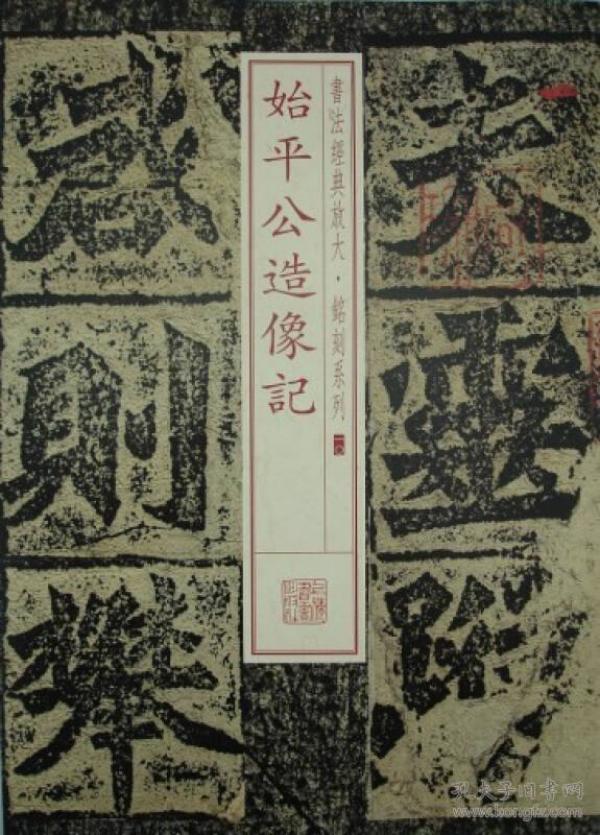 夫靈
書法經典放大·銘刻系列
始平公造像記
上海書畫出版社
則攀
孔夫子旧书网
www.kongfz.com